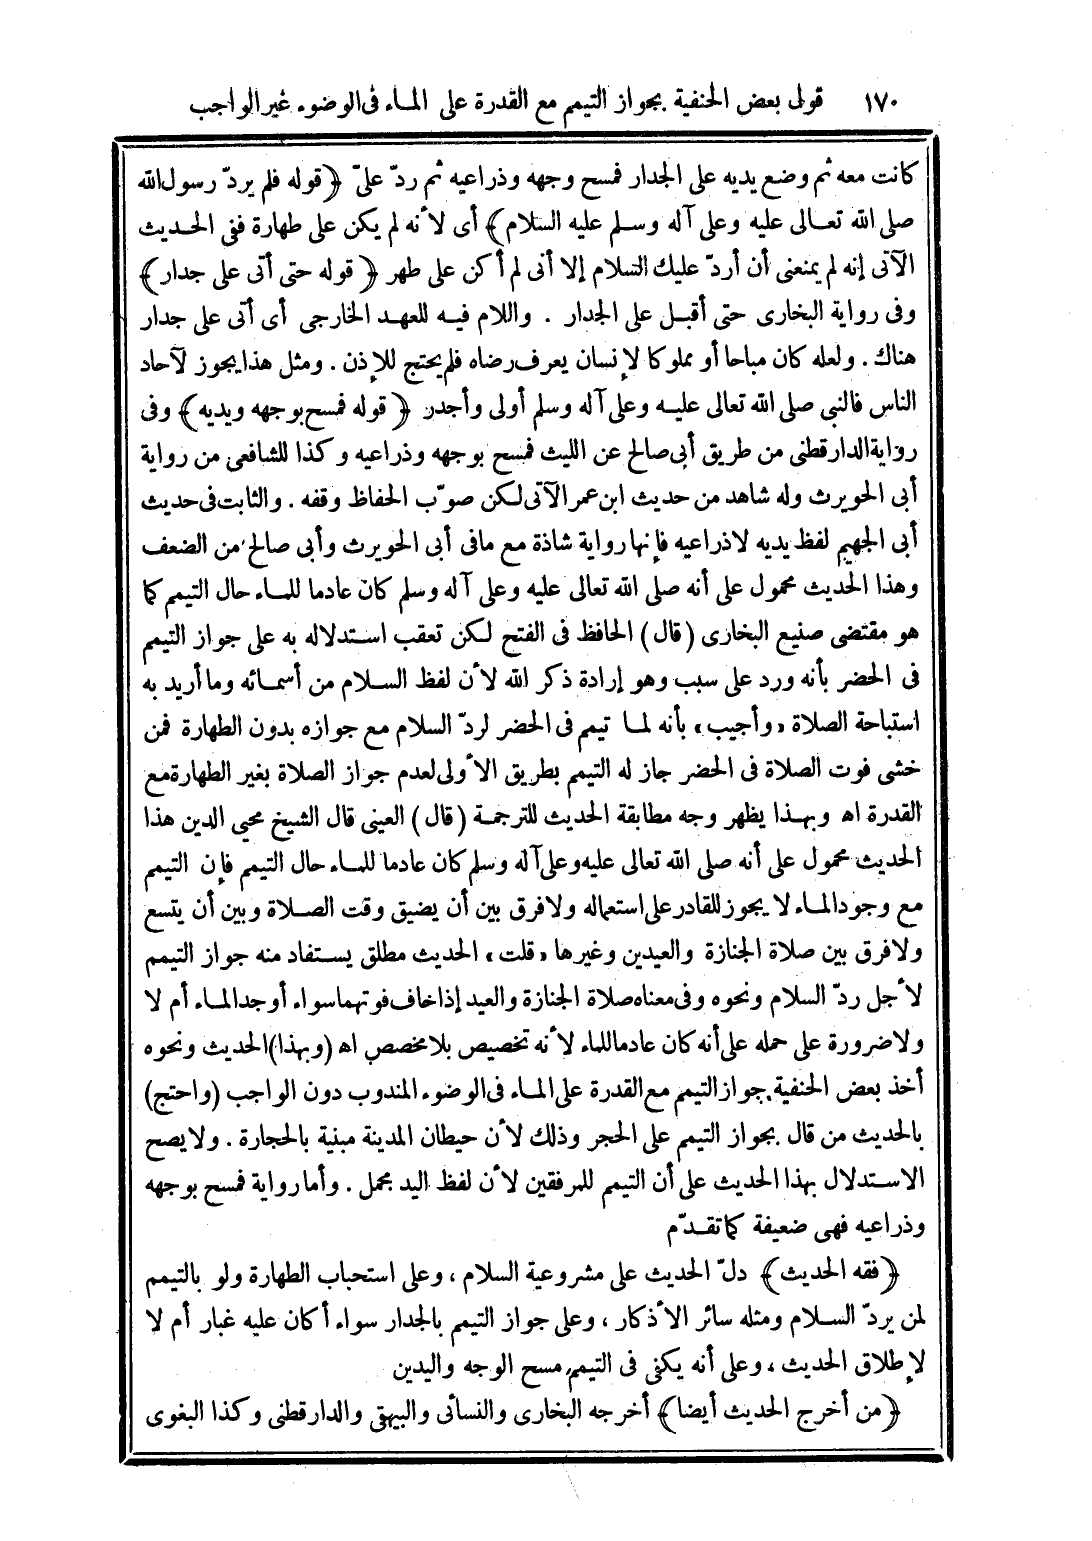 ١٧٠ قول بعض الحنفية بجواز التيمم مع القدرة على المـاء فى الوضوء غير الواجب
كانت معه ثم وضع يديه على الجدار فمسح وجهه وذراعيه ثم ردّ علىّ ﴿قوله فلم يردّ رسول الله
صلى الله تعـالى عليه وعلى آله وسـلم عليه السلام﴾ أى لأنه لم يكن على طهارة ففى الحـديث
الآتى إنه لم يمنعنى أن أردّ عليك السلام إلا أنى لم أكن على طهر ﴿قوله حتى أتى على جدار﴾
وفى رواية البخارى حتى أقبـل على الجدار . واللام فيـه للعهـد الخارجى أى أتى على جدار
هناك . ولعله كان مباحا أو مملوكا لإنسان يعرف رضاه فلم يحتج للإذن . ومثل هذا يجوز لآحاد
الناس فالنبى صلى الله تعالى عليـه وعلى آله وسلم أولى وأجدر ﴿قوله فمسح بوجهه ويديه﴾ وفى
رواية الدارقطنى من طريق أبى صالح عن الليث فمسح بوجهه وذراعيه وكذا للشافعى من رواية
أبى الحويرث وله شاهد من حديث ابن عمر الآتى لكن صوّب الحفاظ وقفه . والثابت فى حديث
أبى الجهيم لفظ يديه لا ذراعيه فإنها رواية شاذة مع ما فى أبى الحويرث وأبى صالح من الضعف
وهذا الحديث محمول على أنه صلى الله تعالى عليه وعلى آله وسلم كان عادما للمـاء حال التيمم كما
هو مقتضى صنيع البخارى (قال) الحافظ فى الفتح لكن تعقب اسـتدلاله به على جواز التيمم
فى الحضر بأنه ورد على سبب وهو إرادة ذكر الله لأن لفظ السـلام من أسمـائه وما أريد به
استباحة الصلاة «وأجيب» بأنه لمـا تيمم فى الحضر لردّ السلام مع جوازه بدون الطهارة فمن
خشى فوت الصلاة فى الحضر جاز له التيمم بطريق الأولى لعدم جواز الصلاة بغير الطهارة مع
القدرة اه وبهـذا يظهر وجه مطابقة الحديث للترجمـة (قال) العينى قال الشيخ محيى الدين هذا
الحديث محمول على أنه صلى الله تعالى عليه وعلى آله وسلم كان عادما للمـاء حال التيمم فإن التيمم
مع وجود المـاء لا يجوز للقادر على استعماله ولا فرق بين أن يضيق وقت الصـلاة وبين أن يتسع
ولا فرق بين صلاة الجنازة والعيدين وغيرها «قلت» الحديث مطلق يسـتفاد منه جواز التيمم
لأجل ردّ السلام ونحوه وفى معناه صلاة الجنازة والعيد إذا خاف فوتهما سواء أوجد المـاء أم لا
ولا ضرورة على حمله على أنه كان عادما للماء لأنه تخصيص بلا مخصص اه (وبهذا) الحديث ونحوه
أخذ بعض الحنفية جواز التيمم مع القدرة على المـاء فى الوضوء المندوب دون الواجب (واحتج)
بالحديث من قال بجواز التيمم على الحجر وذلك لأن حيطان المدينة مبنية بالحجارة . ولا يصح
الاسـتدلال بهذا الحديث على أن التيمم للمرفقين لأن لفظ اليد مجمل . وأما رواية فمسح بوجهه
وذراعيه فهى ضعيفة كما تقـدّم
﴿فقه الحديث﴾ دلّ الحديث على مشروعية السلام ، وعلى استحباب الطهارة ولو بالتيمم
لمن يردّ السـلام ومثله سائر الأذكار ، وعلى جواز التيمم بالجدار سواء أكان عليه غبار أم لا
لإطلاق الحديث ، وعلى أنه يكفى فى التيمم مسح الوجه واليدين
﴿من أخرج الحديث أيضا﴾ أخرجه البخارى والنسائى والبيهقى والدارقطنى وكذا البغوى